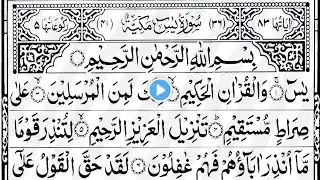 اٰيَاتُهَا ٨٣ (٣٦) سُوْرَةُ يٰسٓ مَكِّيَّةٌ (٤١) رُكُوْعَاتُهَا ٥
بِسْمِ اللهِ الرَّحْمٰنِ الرَّحِيْمِ
يٰسٓ ۚ وَالْقُرْاٰنِ الْحَكِيْمِ لَمِنَ الْمُرْسَلِيْنَ عَلٰى
صِرَاطٍ مُّسْتَقِيْمٍ تَنْزِيْلَ الْعَزِيْزِ الرَّحِيْمِ لِتُنْذِرَ قَوْمًا
مَّآ اُنْذِرَ اٰبَآؤُهُمْ فَهُمْ غٰفِلُوْنَ لَقَدْ حَقَّ الْقَوْلُ عَلٰٓى